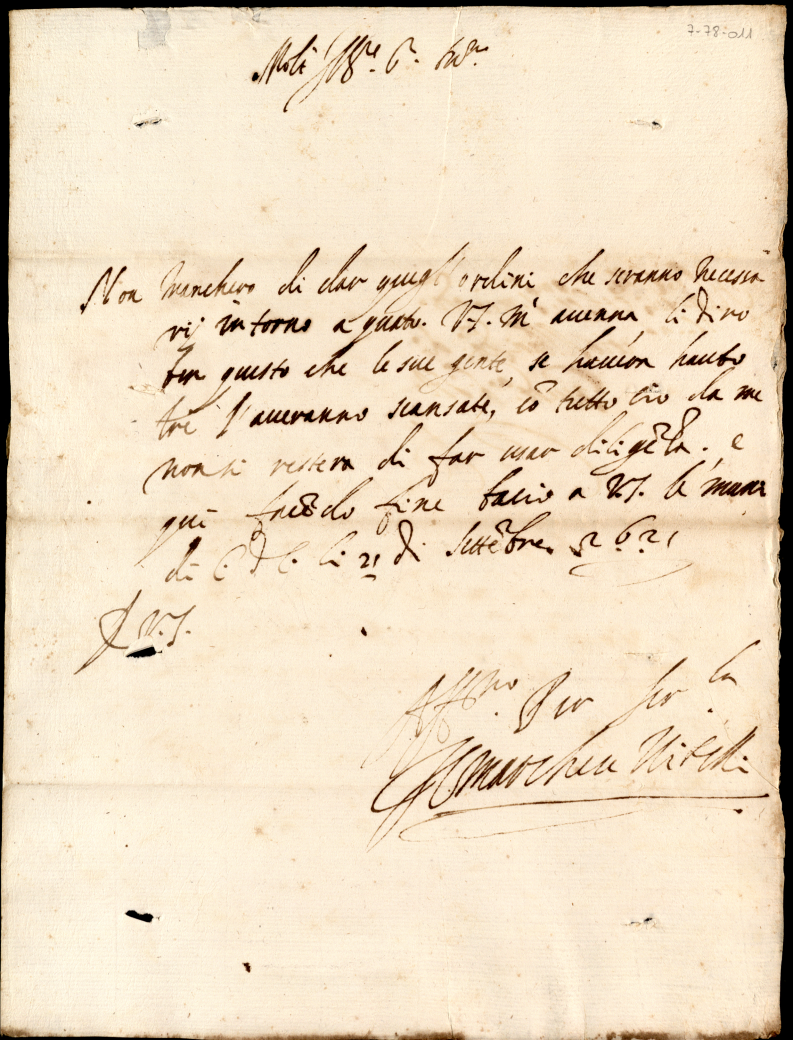 7-78-011
Molt Ill.re S.r
Non mancherò di dar quegl' ordini che seranno necessa
rij intorno a quato. V.S. m' acenna, li diro
ben questo che le sue gente, se
l'averanno scansate, cō tutto ciò da me
non si restera di far usar diligēza. e
qui facēdo fine bacio a V.S. le mani
di C. d C. li 21 di Settēbre. 1621
D V.S.
Aff.mo Per ser.la
Il marchese Vitelli